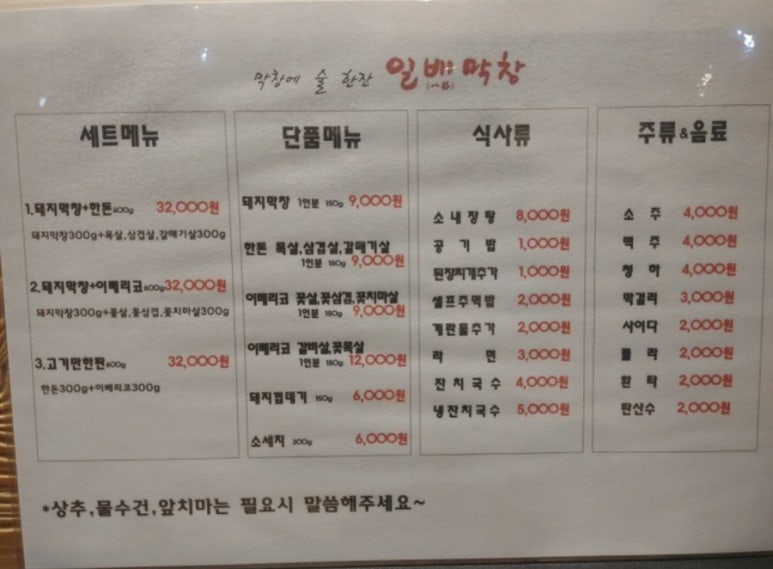 막창에 술 한잔 일배막창
(一杯)
세트메뉴
1.돼지막창+한돈600g 32,000원
돼지막창300g+목살,삼겹살,갈매기살300g
2.돼지막창+이베리코600g 32,000원
돼지막창300g+꽃살,꽃삼겹,꽃치마살300g
3.고기만한판600g 32,000원
한돈300g+이베리코300g
단품메뉴
돼지막창 1인분 150g 9,000원
한돈 목살,삼겹살,갈매기살
1인분 150g 9,000원
이베리코 꽃살,꽃삼겹,꽃치마살
1인분 150g 9,000원
이베리코 갈비살,꽃목살
1인분 150g 12,000원
돼지껍데기 150g 6,000원
소세지 300g 6,000원
식사류
소내장탕 8,000원
공기밥 1,000원
된장찌개추가 1,000원
셀프주먹밥 2,000원
계란물추가 2,000원
라면 3,000원
잔치국수 4,000원
냉잔치국수 5,000원
주류&음료
소주 4,000원
맥주 4,000원
청하 4,000원
막걸리 3,000원
사이다 2,000원
콜라 2,000원
환타 2,000원
탄산수 2,000원
*상추,물수건,앞치마는 필요시 말씀해주세요~